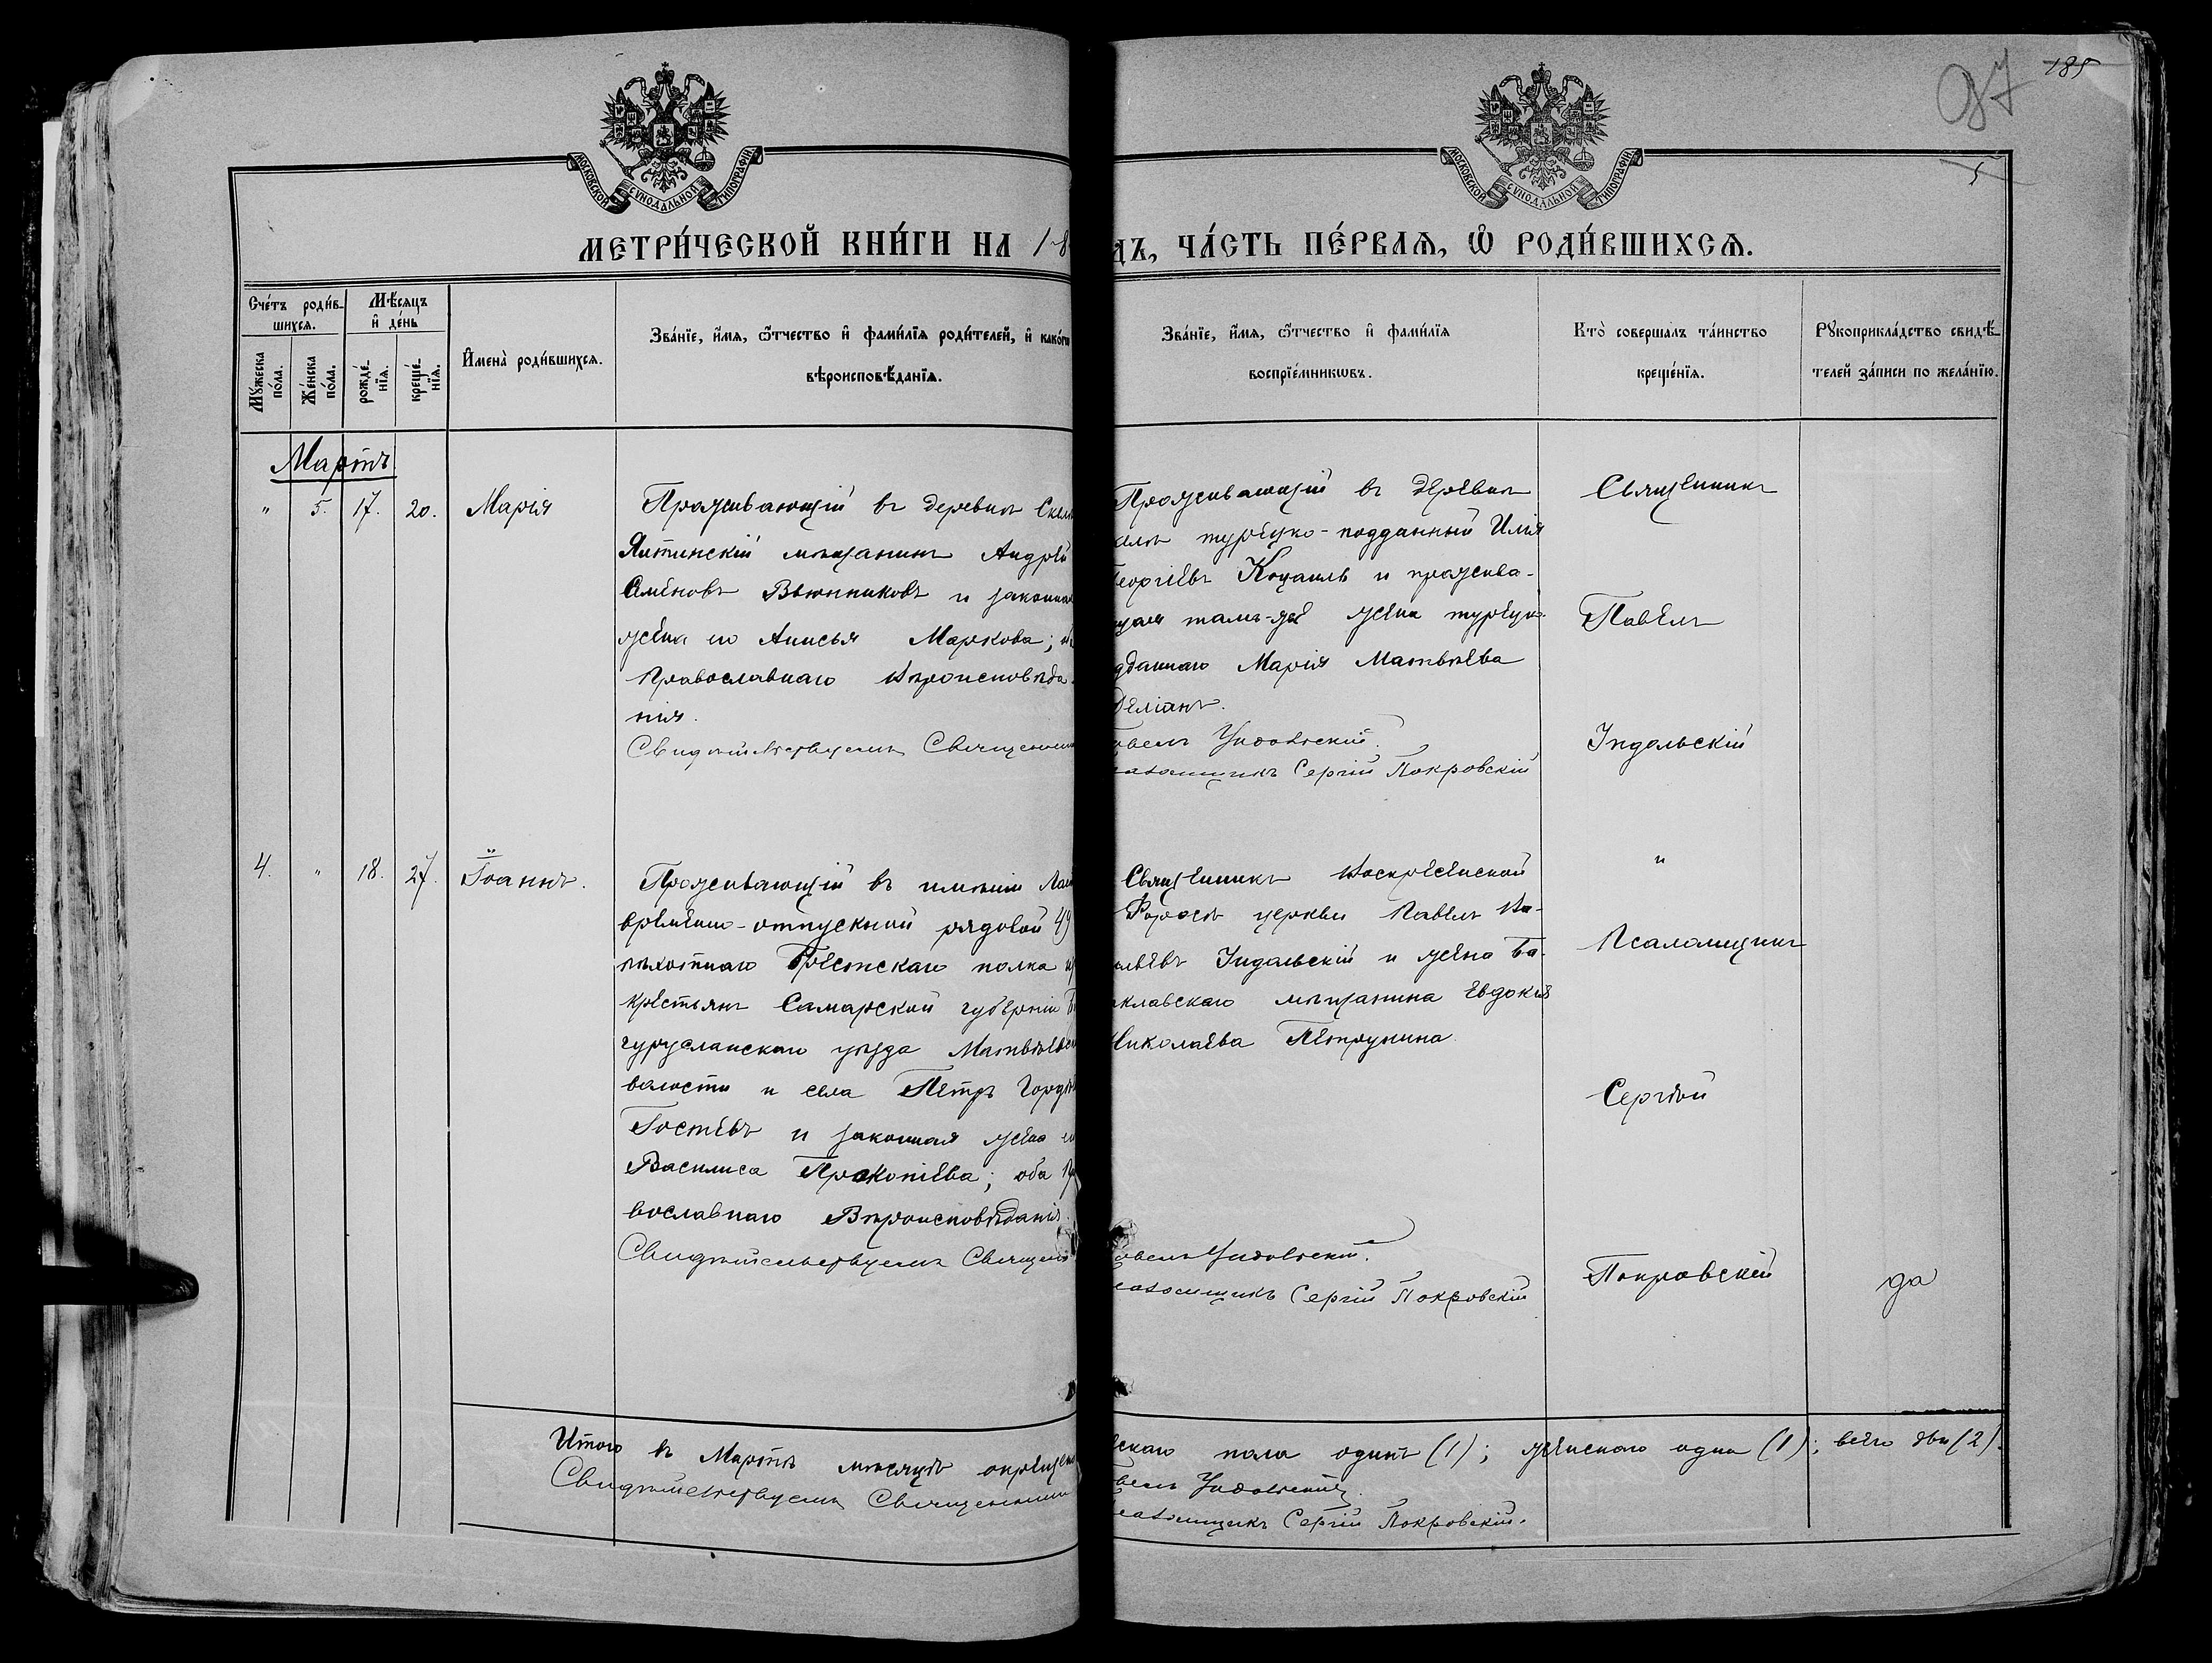 185
97
5
МОСКОВСКОЙ СѴНОДАЛЬНОЙ ТИПОГРАФІИ.
МОСКОВСКОЙ СѴНОДАЛЬНОЙ ТИПОГРАФІИ.
МЕТРИ́ЧЕСКОЙ КНИ́ГИ НА 18
ДЪ, ЧА́СТЬ ПЕ́РВАѦ, Ѡ РОДИ́ВШИХСѦ.
Сче́тъ роди́в-
шихсѧ.
Мꙋ́жеска
по́ла.
Же́нска
по́ла.
Мѣ́сяцъ
и҆ де́нь
рожде́-
нїѧ.
креще́-
нїѧ.
И҆мена̀ роди́вшихсѧ.
Зва́нїе, и҆́мѧ, ѻ҆́тчество и҆ фами́лїѧ роди́телей, и҆ како́гѡ
вѣроисповѣ́данїѧ.
Зва́нїе, и҆́мѧ, ѻ҆́тчество и҆ фами́лїѧ
воспрїе́мникѡвъ.
Кто̀ соверша́лъ та́инство
креще́нїѧ.
Рꙋкоприкла́дство свидѣ́-
телей за́писи по жела́нїю.
Мартъ
" 5. 17. 20. Марія
Проживающій въ деревнѣ Скел
Ялтинскій мѣщанинъ Андрей
Вьюнниковъ и законная
жена его Анисья Маркова;
Православнаго вѣроисповѣда-
нія.
Свидѣтельствуемъ Священни
Проживающій въ деревнѣ
турецко-подданный Илія
еоргіевъ и прожива-
щая тамъ-же жена турецк
дданнаго Марія Матвѣева
Деліанъ.
авелъ Индольскій.
саломщикъ Сергій Покровскій
Священникъ
Павелъ
Индольскій
4. " 18. 27. Іоаннъ.
Проживающій въ имѣніи Лас
временно-отпускной рядовой 49
пѣхотнаго Брестскаго полка
крестьянъ Самарской губерніи
гурусланскаго уѣзда Матвѣевск
волости и села Петръ Гордѣ
Гостевъ и законная жена ег
Василиса Прокопіева; оба Пр
вославнаго Вѣроисповѣданія.
Свидѣтельствуемъ Священ
Священникъ Воскресенской
Форосъ церкви Павелъ Ва-
ильевъ Индольскій и жена Ба-
аклавскаго мѣщанина Евдокія
Николаева Петрунина.
авелъ Индольскій.
саломщикъ Сергій Покровскій
"
Псаломщикъ
Сергій
Покровскій
да
Итого въ Мартѣ мѣсяцѣ окрещен
ескаго пола одинъ (1); женскаго одна (1); всего два (2).
Свидѣтельствуемъ Священни
авелъ Индольскій.
саломщикъ Сергій Покровскій.